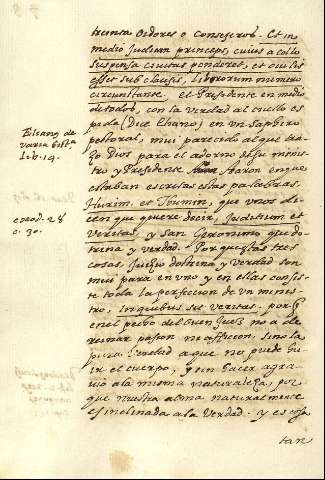 treinta Oidores o Consejeros. Et in
medio Judicum princeps, cuius a collo
suspensa civitas ponderet, et oculis
esset sub clausis, librorum numero
circunstante. el Presidente en medio
de todos, con la verdad al cuello es
pada (Dice Eliano) en un Saphiro
pectoral, mui parecido al que tra
zo Dios para el adorno de su minis
tro y Presidente Aaron en que
estaban escritas estas palabras
Hurim. et Thumin, que unos di
cen que quiere decir, Judicium et
Veritas, y San Geronimo que do
trina y verdad. Por que estas tres
cosas, Juizio doctrina y verdad son
mui para en uno y en ellas consis
te toda la perfeccion de un minis
tro, In quibus sit veritas. porq
en el pecho del buen Juez no a de
reinar pasion ni afficion, sino la
pura verdad a que no puede hu
ir el cuerpo, y sin hacer agra
vio a la misma naturaleza, por
que nuestra alma naturalmente
es inclinada a la Verdad. y es cosa
tan
Eliano de
varia hista
lib. 14.
exod. 28
c. 30.